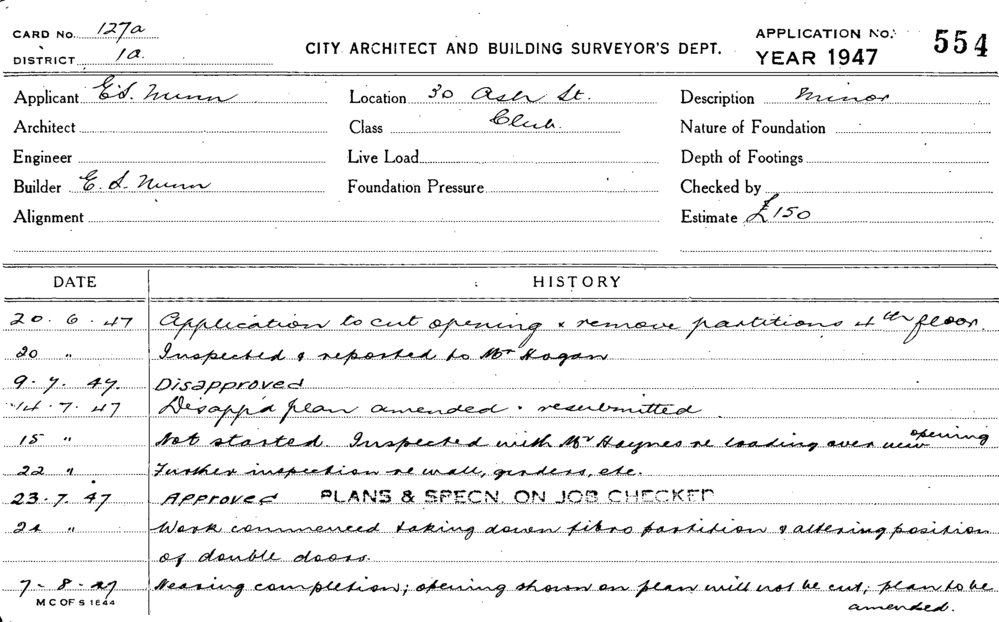 CARD No. 127a
DISTRICT 1a.
CITY ARCHITECT AND BUILDING SURVEYOR'S DEPT.
APPLICATION No. 554
YEAR 1947
Applicant E.S. Nunn
Location 30 Ash St.
Description Minor
Architect
Class Club.
Nature of Foundation
Engineer
Live Load
Depth of Footings
Builder E. S. Nunn
Foundation Pressure
Checked by
Alignment
Estimate £150
DATE HISTORY
20. 6. 47 Application to cut opening & remove partitions 4th floor.
20 " Inspected & reported to Mr Hogan
9. 7. 47. Disapproved
14. 7. 47 Disapp'd plan amended & resubmitted.
15 " Not started. Inspected with Mr Haynes re loading over new opening
22 " Further inspection re wall, girders, etc.
23. 7. 47 Approved PLANS & SPECN. ON JOB CHECKED
24 " Work commenced taking down fibro partition & altering position
of double doors.
7- 8. 47 Nearing completion; opening shown on plan will not be cut; plan to be
amended.
M C OF S 1844